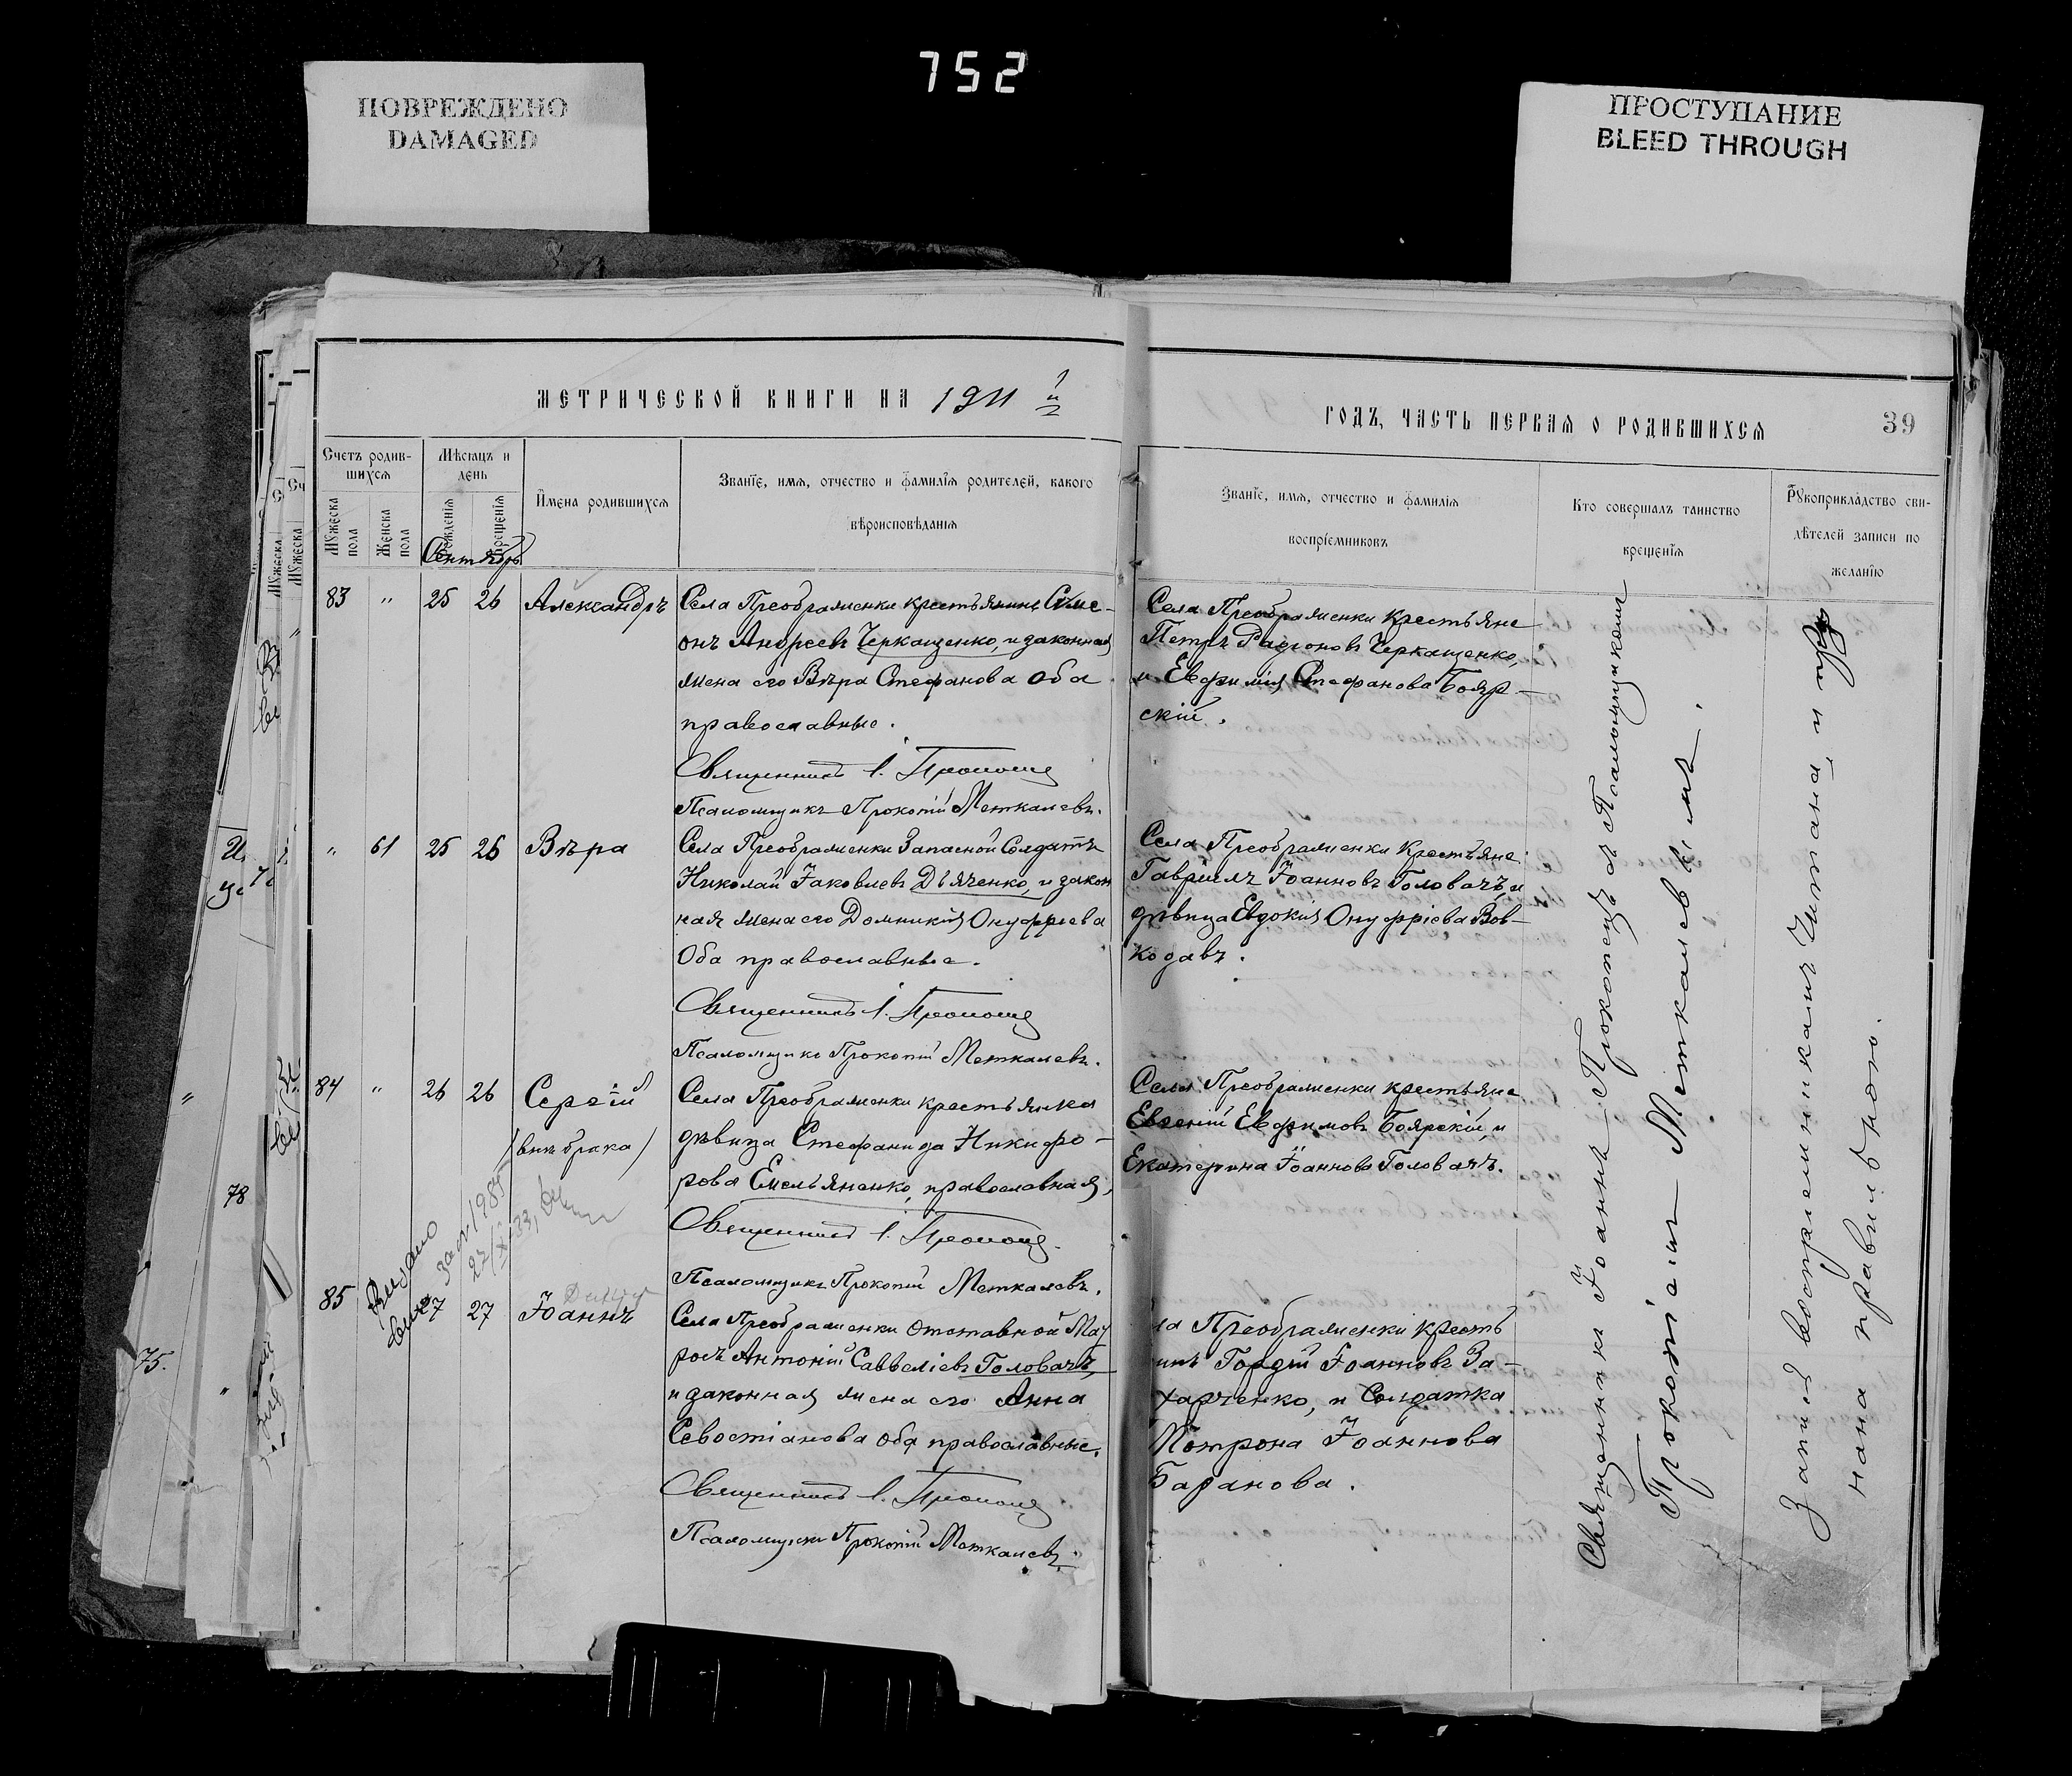 752
ПОВРЕЖДЕНО
DAMAGED
ПРОСТУПАНИЕ
BLEED THROUGH
МЕТРИЧЕСКОЙ КНИГИ НА 1911
ГОДЪ, ЧАСТЬ ПЕРВАЯ О РОДИВШИХСЯ
39
Счетъ родив-
шихся
Мѣсяцъ и
день
Имена родившихся
Званіе, имя, отчество и фамилія родителей, какого
вѣроисповѣданія
Мужеска
пола
Женска
пола
Рожденія
Крещенія
Сентябрь
Званіе, имя, отчество и фамилія
воспріемниковъ
Кто совершалъ таинство
крещенія
Рукоприкладство сви-
дѣтелей записи по
желанію
83 " 25 26 Александръ
Села Преображенки крестьянинъ Симе-
онъ Андреевъ Черкащенко, и законная
жена его Вѣра Стефанова оба
православные.
Священникъ І.
Псаломщикъ Прокопій Меткалевъ.
Села Преображенки крестьяне
Петръ Родіоновъ Черкащенко,
и Евфимія Стефанова Бояр-
скій.
" 61 25 26 Вѣра
Села Преображенки Запасной Солдатъ
Николай Іаковлевъ Дьяченко, и закон
ная жена его Домникія Онуфріева
Оба православные.
Священникъ І.
Псаломщикъ Прокопій Меткалевъ.
Села Преображенки Крестьяне
Гавріилъ Іоанновъ Головачъ, и
дѣвица Евдокія Онуфріева Вов-
кодавъ.
84 " 26 26 Сергій
/внѣ брака/
Села Преображенки крестьянка
дѣвица Стефанида Никифо-
рова Емельяненко, православная,
Священникъ І.
Псаломщикъ Прокопій Меткалевъ.
Села Преображенки крестьяне
Евгеній Евфимовъ Боярскій, и
Екатерина Іоаннова Головачъ.
85 27 27 Іоаннъ
Села Преображенки отставной Мат
росъ Антоній Савеліевъ Головачъ,
и законная жена его Анна
Севостіанова оба православные.
Священникъ І.
Псаломщикъ Прокопій Меткалевъ.
ла Преображенки крестья
инъ Гордій Іоанновъ За-
харченко, и Солдатка
Матрона Іоаннова
Баранова.
Священникъ Іоаннъ Прокопецъ съ Псаломщикомъ
Прокопіемъ Меткалевымъ.
Запись воспріемникамъ читана и приз
нана правильною.
78
75.